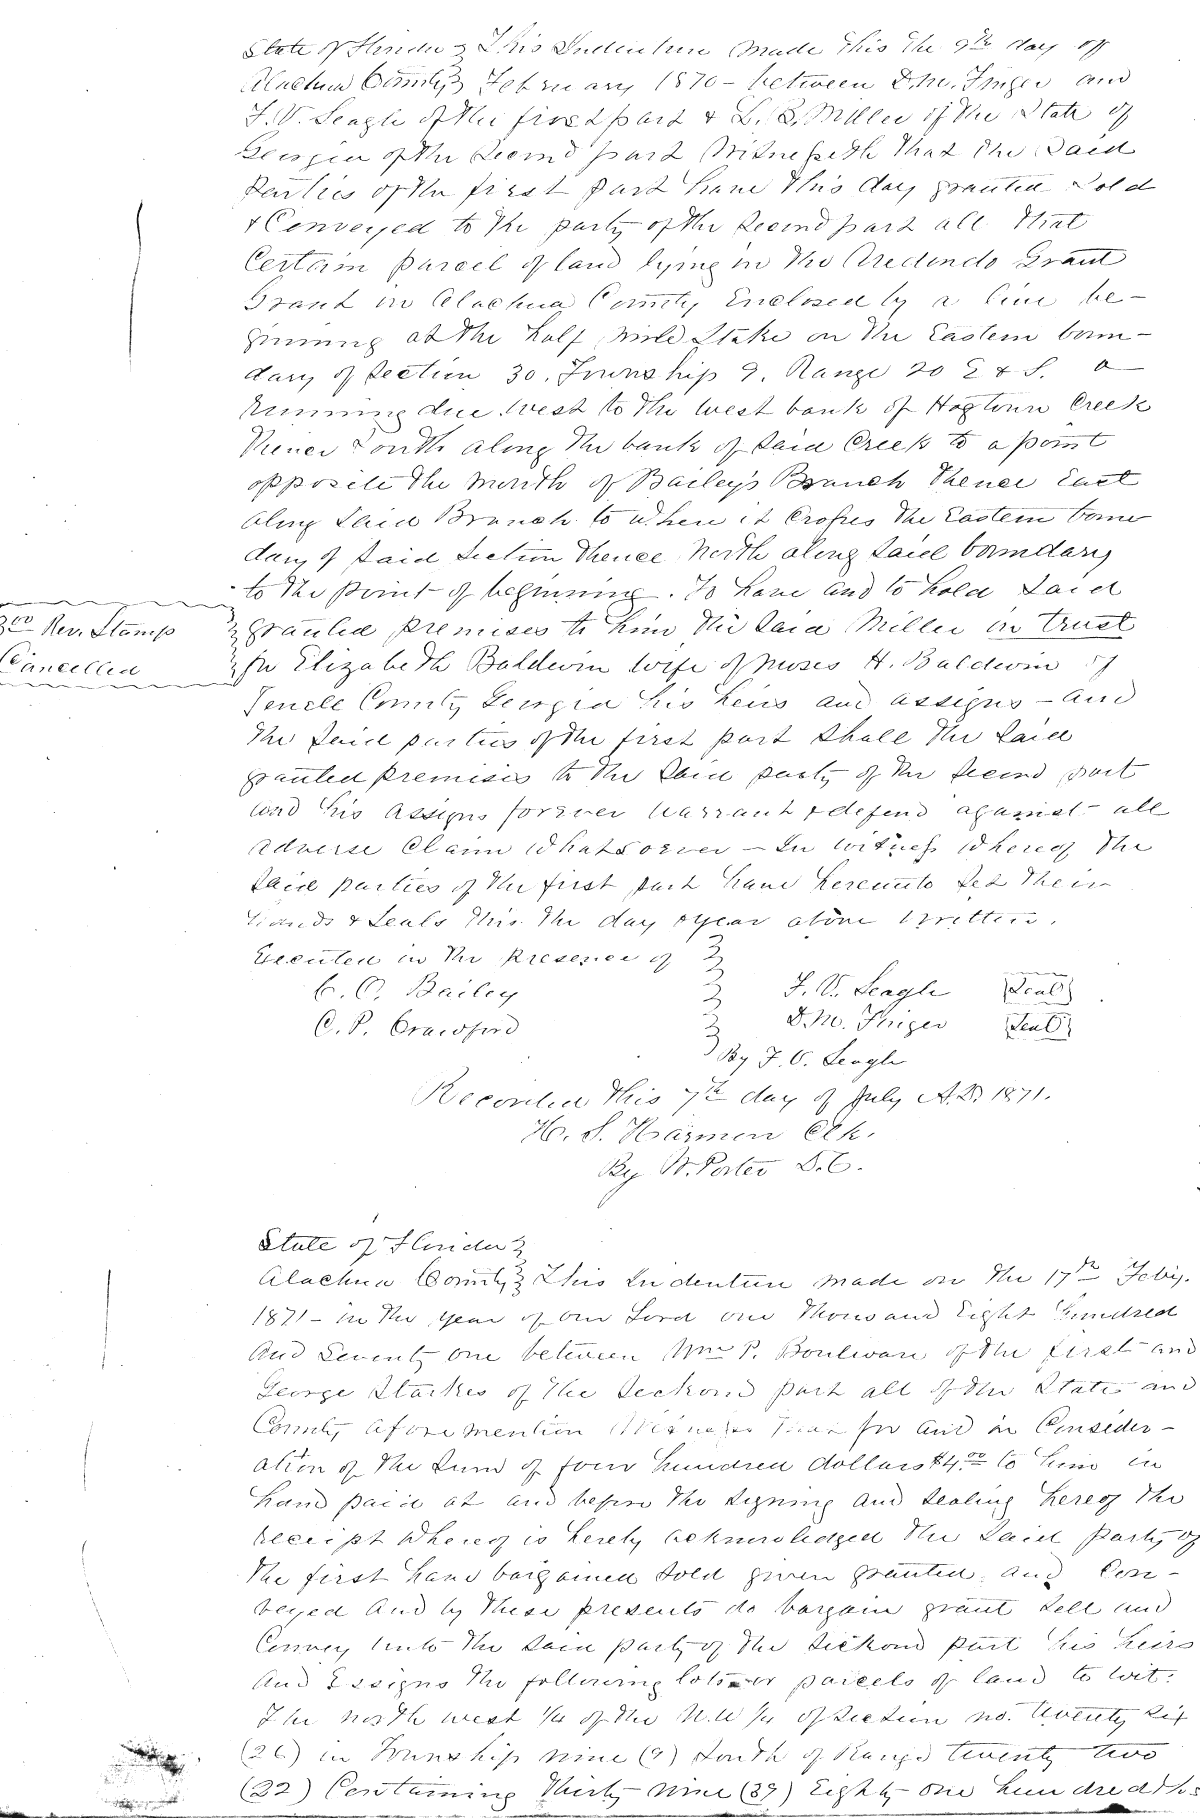 State of Florida } This Indenture made this the 9th day of
Alachua County } February 1870 - between D.M. Finger and
F. V. Seagle of the first part & L. B. Miller of the State of
Georgia of the Second part Witnesseth that the Said
Parties of the first part have this day granted Sold
& Conveyed to the party of the Second part all that
Certain parcel of land lying in the Aredondo Grant
Grant in Alachua County Enclosed by a line be-
ginning at the half mile Stake on the Eastern boun-
dary of Section 30. Township 9. Range 20 E & S. a
running due west to the west bank of Hogtown Creek
Thence South along the bank of Said Creek to a point
opposite the mouth of Bailey's Branch Thence East
along Said Branch to where it Crosses the Eastern boun
dary of Said Section Thence North along Said boundary
to the point of beginning. To have and to hold Said
3 00 Rev. Stamp
Cancelled
granted premises to him the Said Miller in trust
for Elizabeth Baldwin wife of Moses H. Baldwin of
County Georgia his heirs and assigns - and
the Said parties of the first part Shall the Said
granted premises to the Said party of the Second part
and his assigns forever warrant & defend against all
adverse Claim Whatsoever - In witness Whereof the
Said parties of the first part have hereunto Set their
hands & Seals this the day & year above written.
Executed in the presence of
C. O. Bailey F. V. Seagle (Seal)
C. P. Crawford D.M. Finger (Seal)
By F. V. Seagle
Recorded this 7th day of July A.D. 1871.
H. S. Harmon Clk.
By W. Porter D.C.
State of Florida }
Alachua County } This Indenture made on the 17th Feby.
1871 - in the year of our Lord one thousand Eight hundred
and Seventy one between Wm P. Bouleware of the first and
George Starkes of the Seckond part all of the State and
County aforemention that for and in Consider-
ation of the Sum of four hundred dollars $4.00 to him in
hand paid at and before the Signing and Sealing hereof the
receipt Whereof is hereby acknowledged the Said party of
the first have bargained Sold given granted and Con-
veyed and by these presents do bargain grant Sell and
Convey unto the Said party of the Seckond part his heirs
and Essigns the following lots or parcels of land to wit:
The north west 1/4 of the N.W 1/4 of Section no. twenty Six
(26) in Township nine (9) South of Range twenty two
(22) Containing Thirty nine (39) Eighty one hundredths